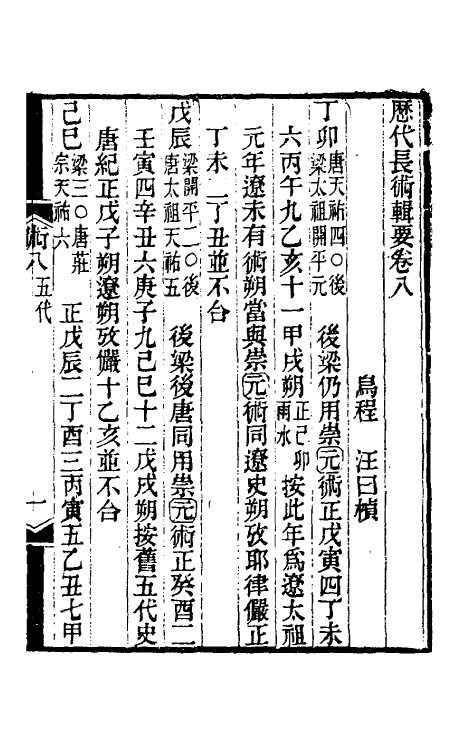 歷代長術輯要卷八
烏程 汪曰楨
丁卯唐天祐四〇後梁太祖開平元 後梁仍用崇元術正戊寅四丁未
六丙午九乙亥十一甲戌朔正己卯雨水按此年爲遼太祖
元年遼未有術朔當與崇元術同遼史朔攷耶律儼正
丁未 二丁丑並不合
戊辰梁開平二〇後唐太祖天祐五 後梁後唐同用崇元術正癸酉二
壬寅四辛丑六庚子九己巳十二戊戌朔按舊五代史
唐紀正戊子朔遼朔攷儼十乙亥並不合
己巳梁三〇唐莊宗天祐六 正戊辰二丁酉三丙寅五乙丑七甲
術八 五代 一